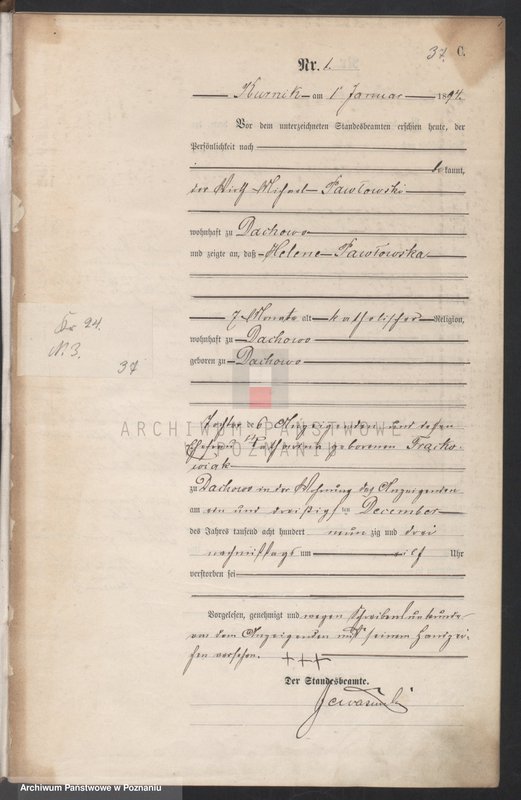 37. C.
Nr. 1.
Kurnik am 1 Januar 1894.
Vor dem unterzeichneten Standesbeamten erschien heute, der
Persönlichkeit nach
bekannt,
der Wirth Michael Pawłowski
wohnhaft zu Dachowo
und zeigte an, daß Helene Pawłowska
7 Monate alt katholischer Religion,
wohnhaft zu Dachowo
geboren zu Dachowo
Kr 24.
N. 3.
37
Tochter des Anzeigenden und dessen
Ehefrau geborenen Frącko-
wiak
zu Dachowo in der Wohnung des Anzeigenden
am ein und dreißigsten December
des Jahres tausend acht hundert neunzig und drei
nachmittags um elf Uhr
verstorben sei
Vorgelesen, genehmigt und wegen Schreibensunkunde
von dem Anzeigenden mit seinem Handzei-
chen versehen. +++
Der Standesbeamte.
ARCHIWUM PAŃSTWOWE
W POZNANIU
Archiwum Państwowe w Poznaniu